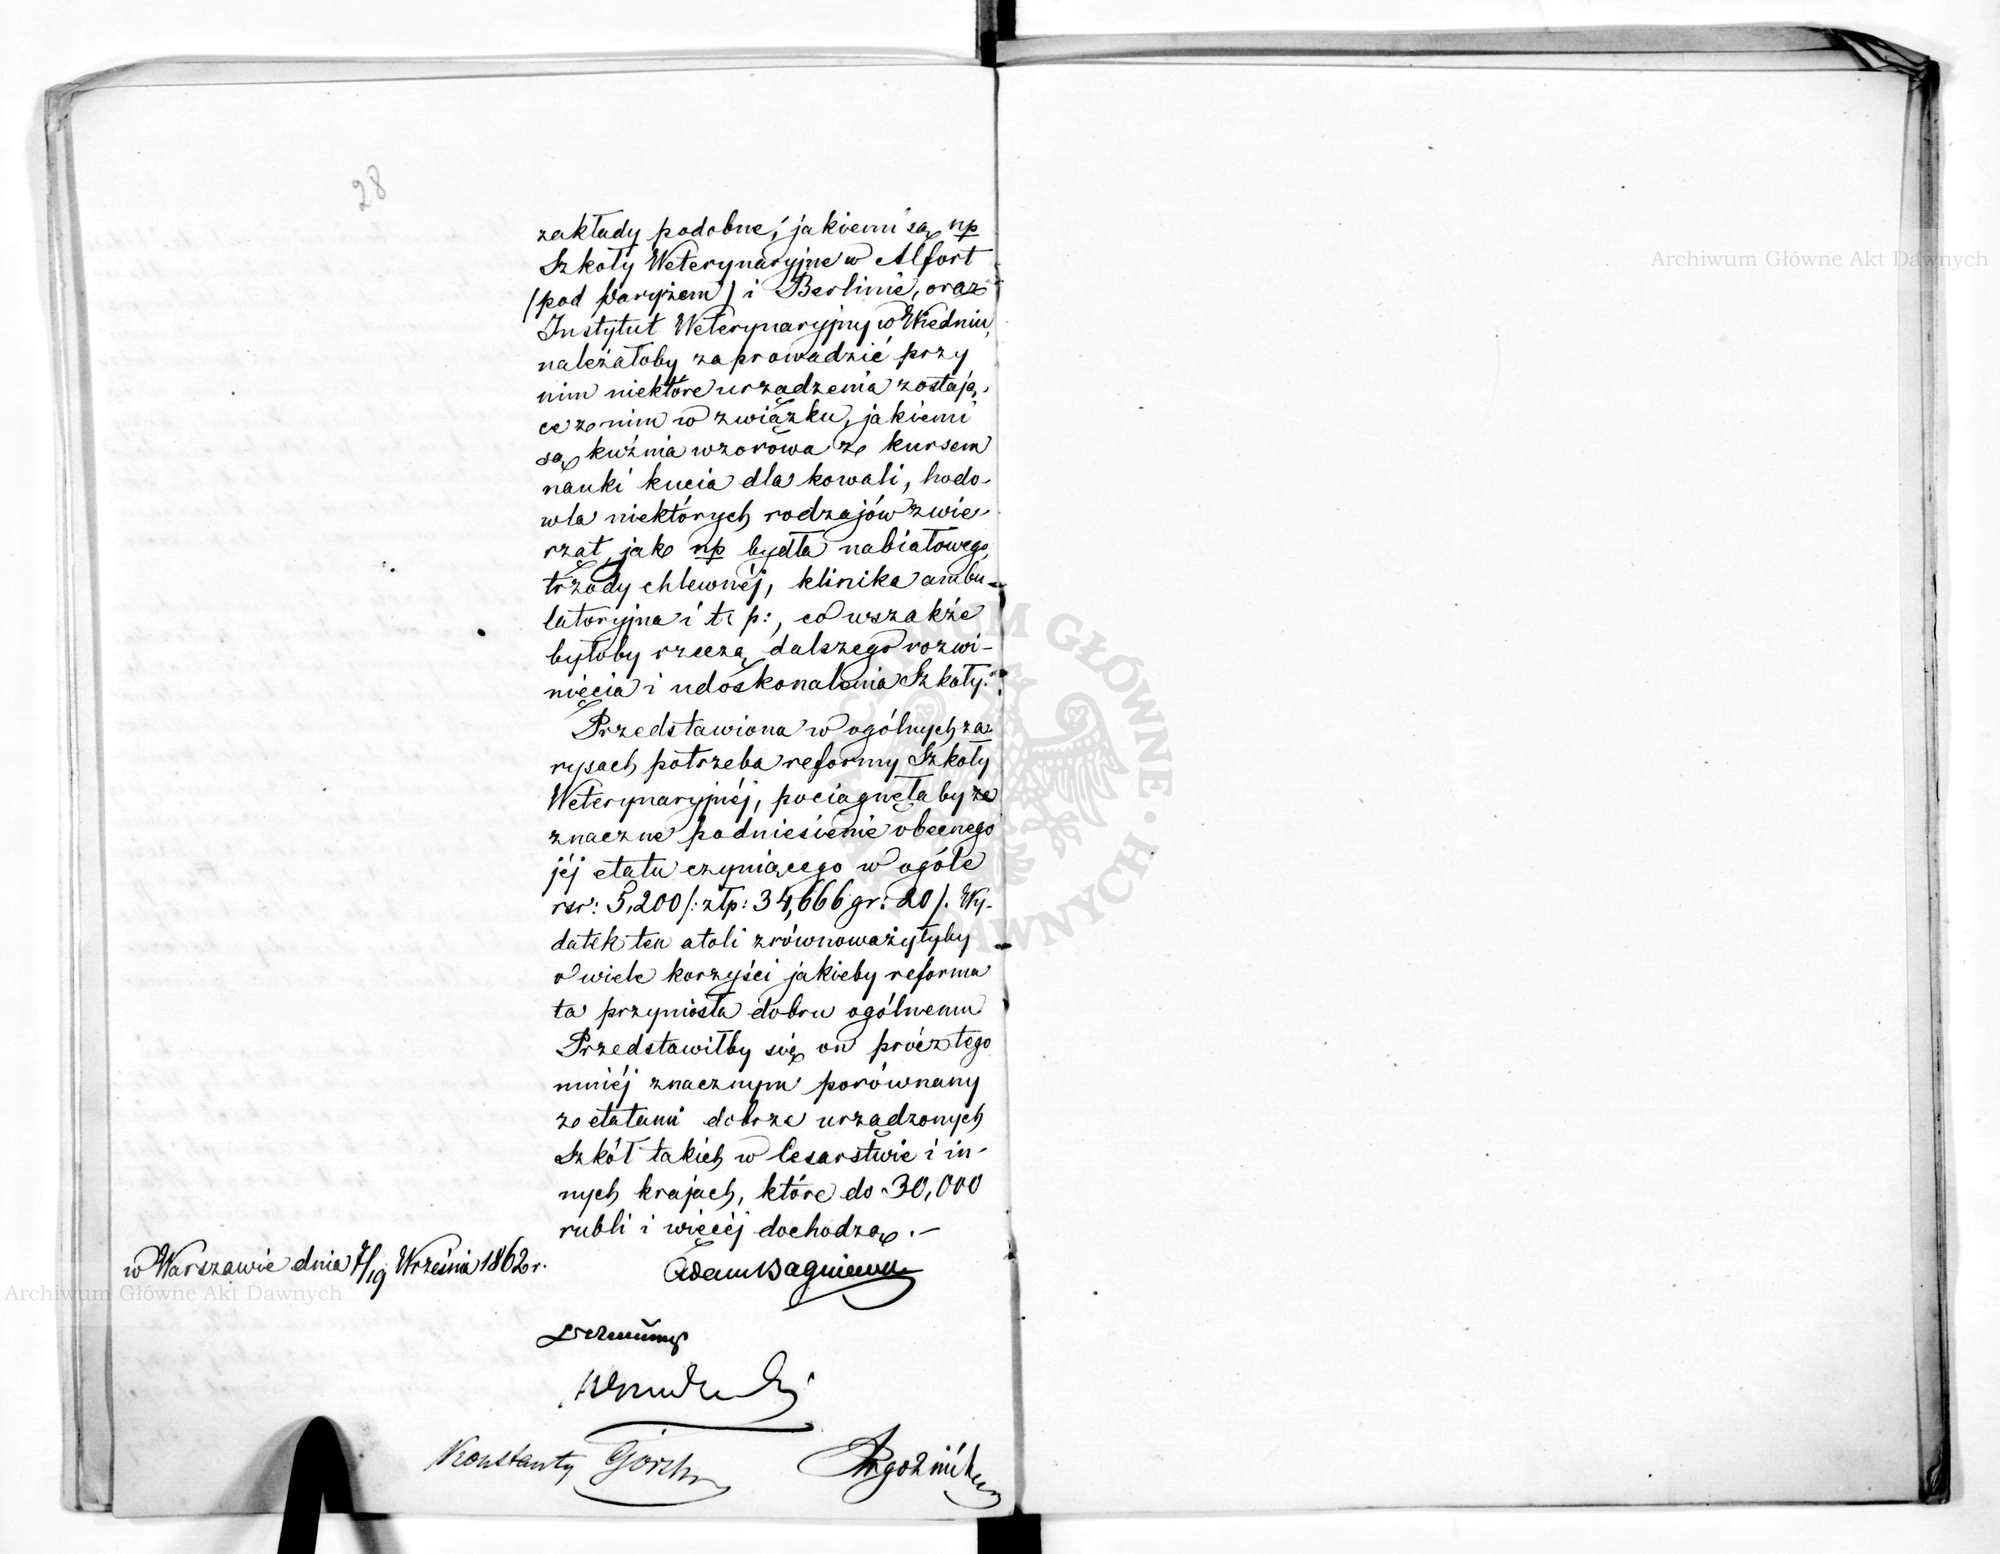 28
zakłady podobne, jakiemi są np
Szkoły Weterynaryjne w Alfort
(pod Paryżem) i Berlinie, oraz
Instytut Weterynaryjny w Wiedniu,
należałoby zaprowadzić przy
nim niektóre urządzenia zostają-
ce z nim w związku, jakiemi
są kuźnia wzorowa z kursem
nauki kucia dla kowali, hodo-
wla niektórych rodzajów zwie-
rząt, jak np bydła nabiałowego,
trzody chlewnéj, klinika ambu-
latoryjna i t. p:, co wszakże
byłoby rzeczą dalszego rozwi-
nięcia i udoskonalenia Szkoły.
Przedstawiona w ogólnych za-
rysach potrzeba reformy Szkoły
Weterynaryjnéj, pociągnęłaby za
znaczne podniesienie obecnego
jéj etatu czyniącego w ogóle
rsr: 5,200 /: złp: 34,666 gr: 20 /. Wy-
datek ten atoli zrównoważyłyby
o wiele korzyści jakieby reforma
ta przyniosła dobru ogólnemu
Przedstawiłby się on prócz tego
mniéj znacznym porównany
z etatami dobrze urządzonych
Szkół takich w Cesarstwie i in-
nych krajach, które do 30,000
rubli i więcéj dochodzą.–
w Warszawie dnia 7/19 Września 1862 r.
Adam
Konstanty Górski
Archiwum Główne Akt Dawnych
Archiwum Główne Akt Dawnych
ARCHIWUM GŁÓWNE AKT DAWNYCH